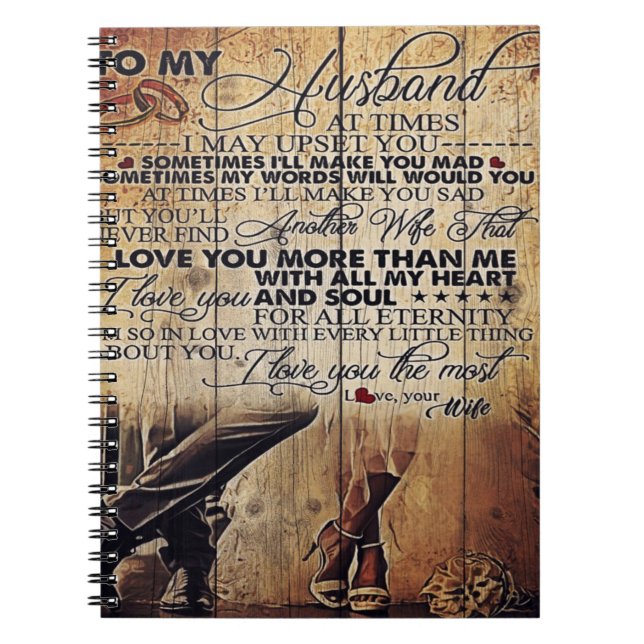 TO MY Husband
AT TIMES
I MAY UPSET YOU
SOMETIMES I'LL MAKE YOU MAD
OMETIMES MY WORDS WILL WOULD YOU
AT TIMES I'LL MAKE YOU SAD
UT YOU'LL
EVER FIND Another Wife That
LOVE YOU MORE THAN ME
WITH ALL MY HEART
I love you AND SOUL
FOR ALL ETERNITY
M SO IN LOVE WITH EVERY LITTLE THING
BOUT YOU.
I love you the most
Love, your
Wife